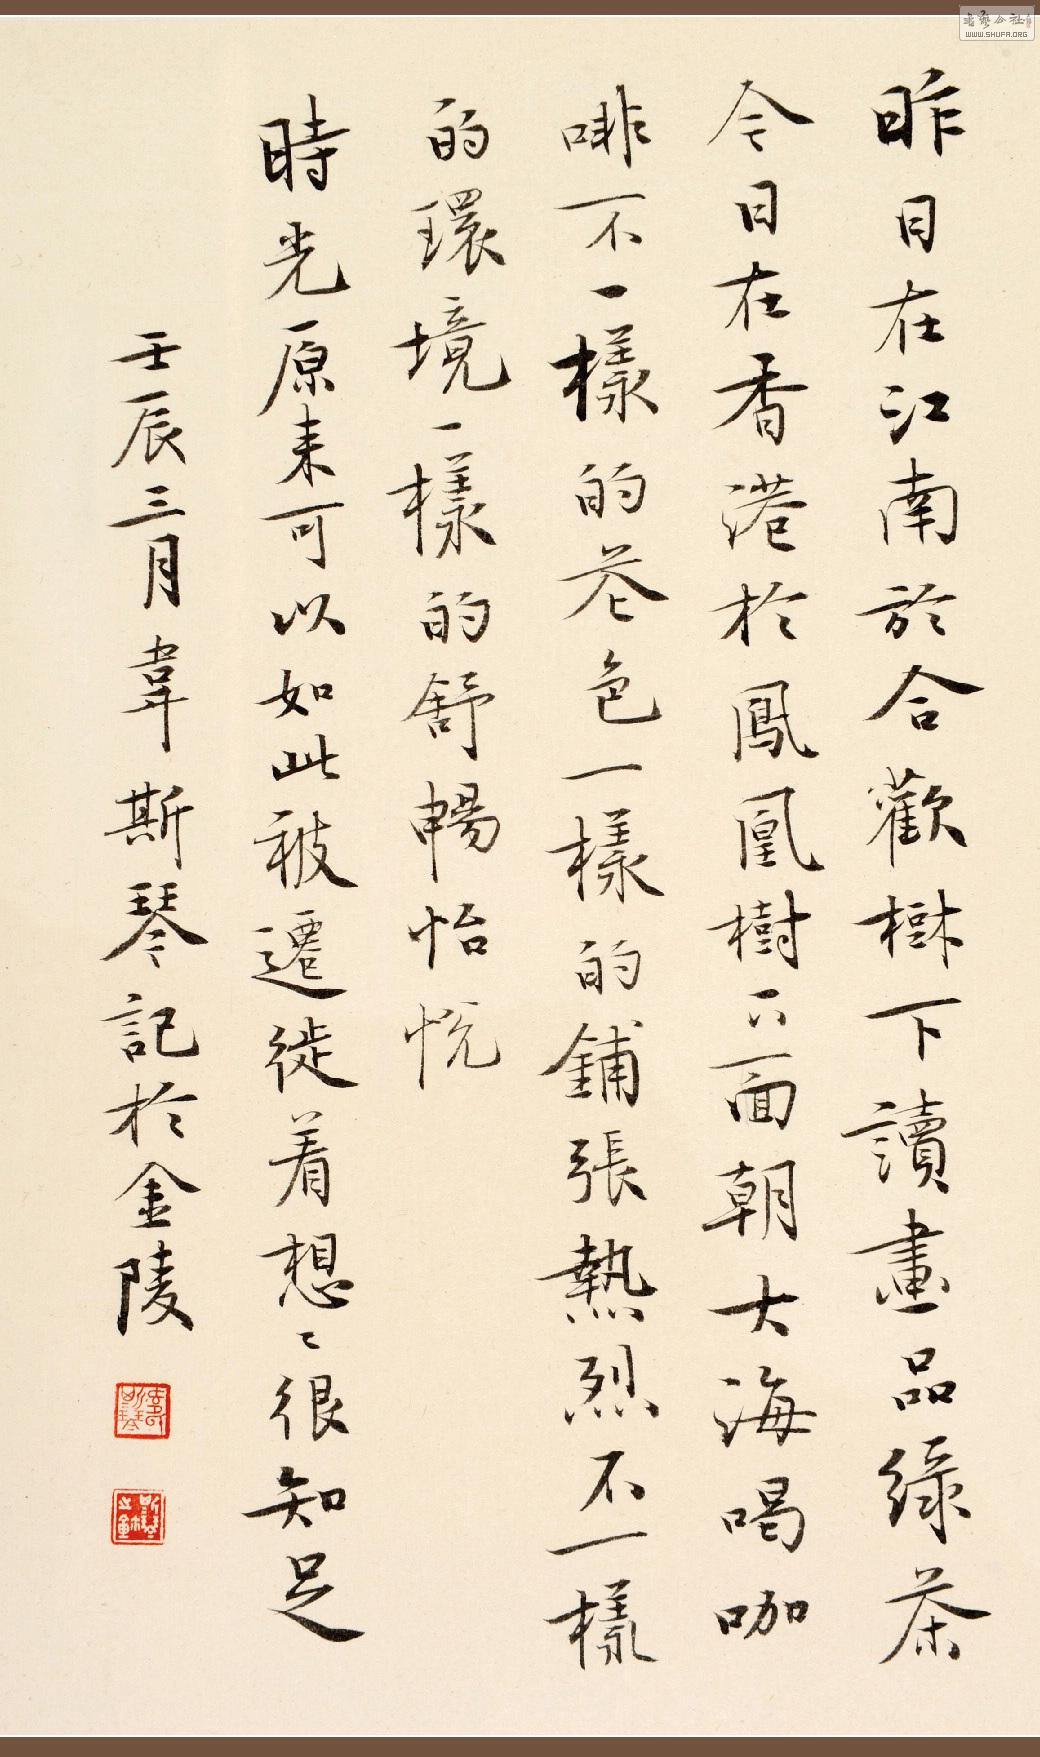 昨日在江南於合歡樹下讀畫品綠茶
今日在香港於鳳凰樹下面朝大海喝咖
啡不一樣的花色一樣的鋪張熱烈不一樣
的環境一樣的舒暢怡悅
時光原来可以如此被遷徙着想〻很知足
壬辰三月韋斯琴記於金陵
韋斯琴
書藝公社
WWW.SHUFA.ORG